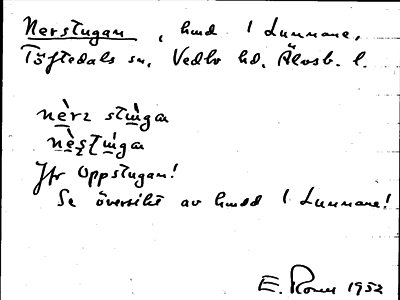 Nerstugan, hmd 1 Lunnane,
Töftedals sn, Vedbo hd, Älvsb. l.
nèrz stúngan
nèstúngan
Jfr Oppstugan!
Se översikt av hmdd 1 Lunnane!
E. 1952